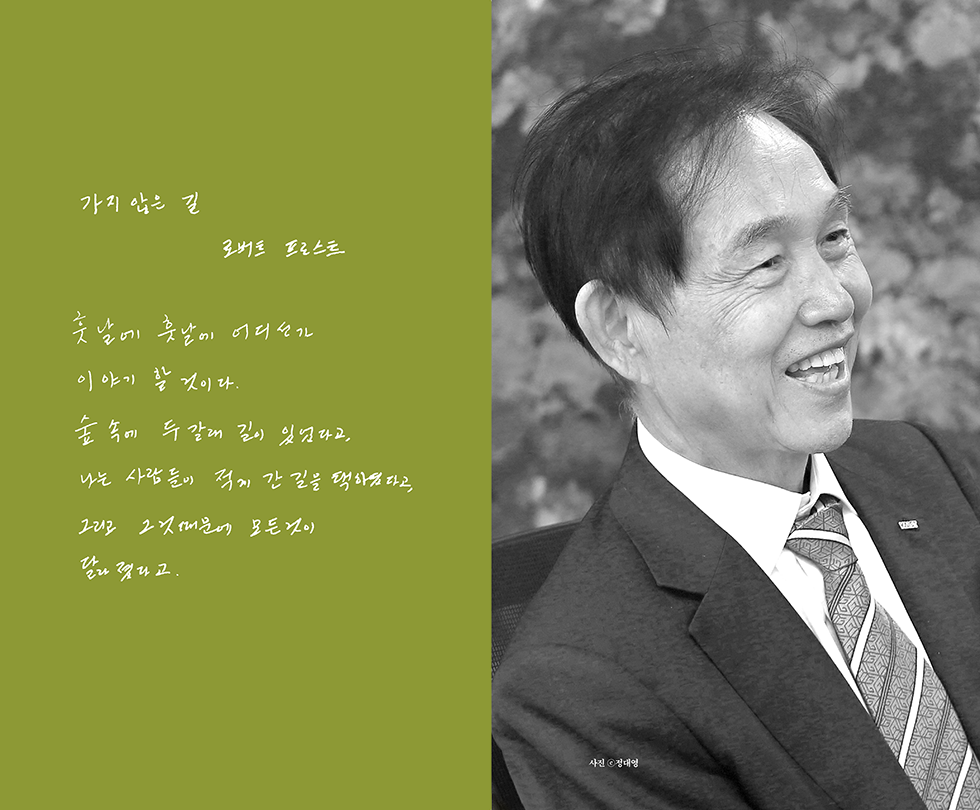 가지 않은 길
로버트 프로스트
훗날에 훗날에 어디선가
이야기 할 것이다.
숲 속에 두 갈래 길이 있었다고,
나는 사람들이 적게 간 길을 택하였다고,
그리고 그것 때문에 모든것이
달라졌다고.
사진 ⓒ정대영